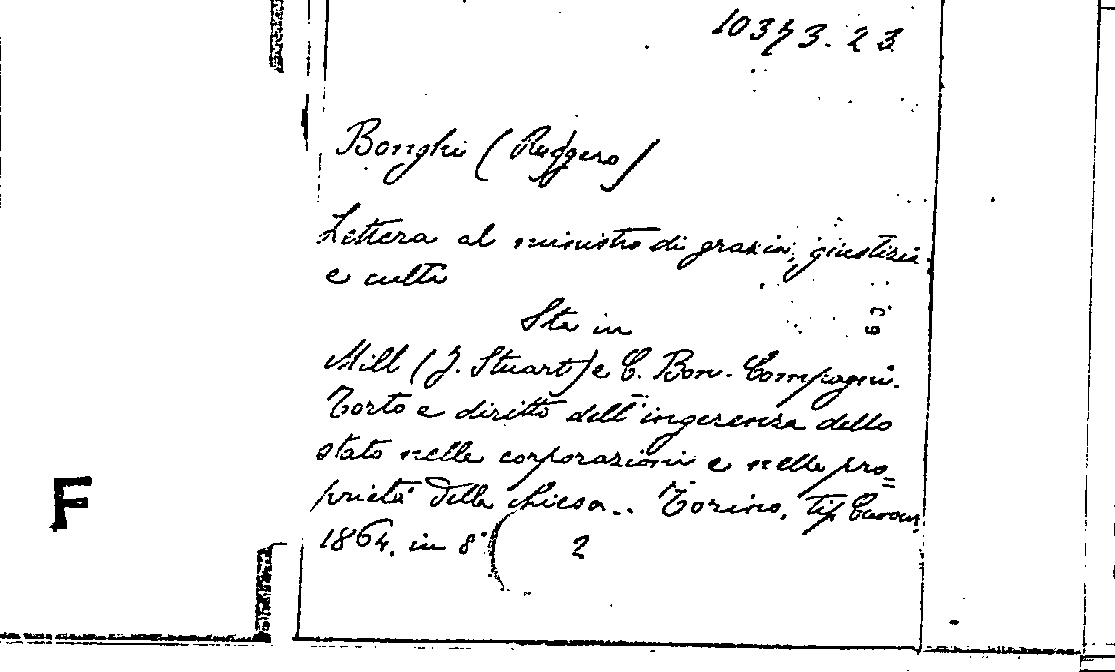 10373.23
Bonghi (Ruggero)
Lettera al ministro di grazia, giustizia
e culti
Sta in
Mill (J. Stuart) e C. Bon-Compagni.
Torto e diritto dell'ingerenza dello
stato nelle corporazioni e nelle pro=
prietà della chiesa.. Torino, tip. Cavour,
1864. in 8° ( 2
F